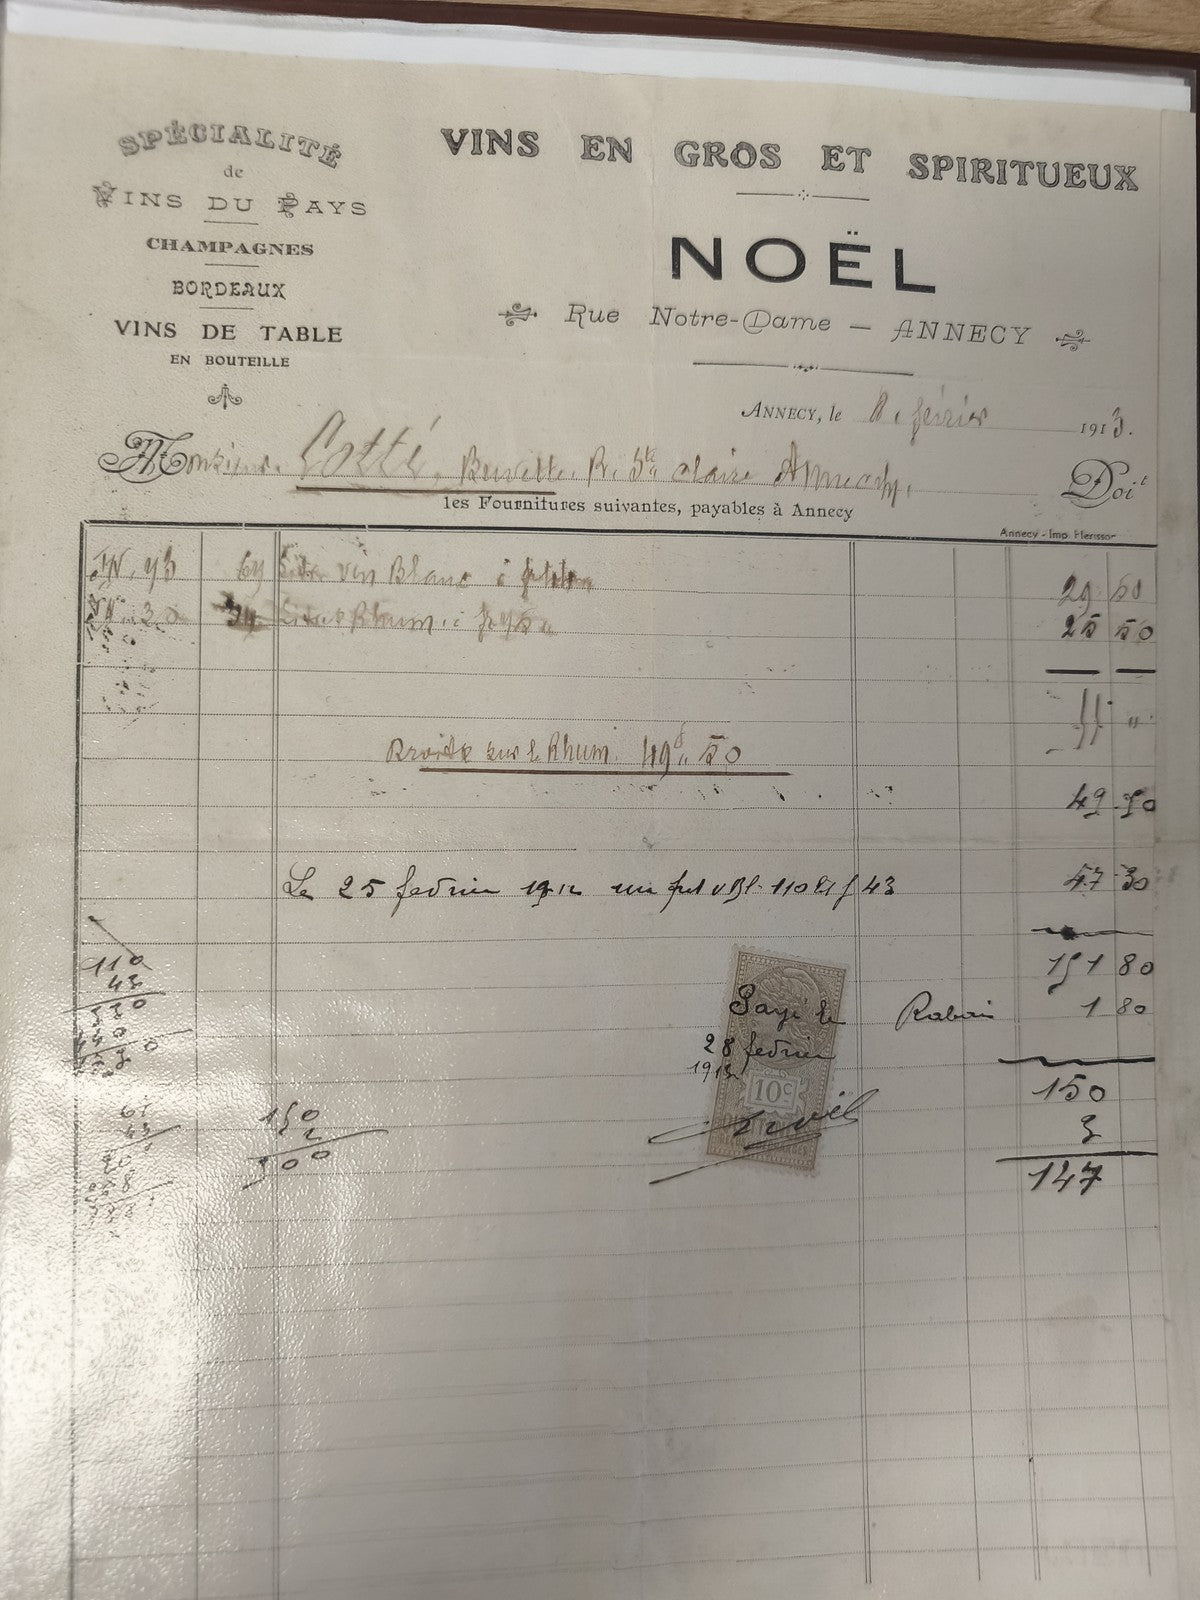 SPÉCIALITÉ
de
VINS DU PAYS
CHAMPAGNES
BORDEAUX
VINS DE TABLE
EN BOUTEILLE
VINS EN GROS ET SPIRITUEUX
NOËL
Rue Notre-Dame — ANNECY
ANNECY, le 8 février 1913.
Monsieur Cotté, Buvette. R. Ste Claire Annecy. Doit
les Fournitures suivantes, payables à Annecy
Annecy - Imp. Hérisson
93 69 Lit. vin Blanc à 29 50
30 Rhum à 25 50
55 "
Droits sur le Rhum 49 f 50
49 50
Le 25 fevrier 1912 un fut v Bl. 110 lit f 43 47 30
151 80
Rabais 1 80
Payé le
28 fevrier
1913
10c
Noël
150
3
147
110
43
150
2
300